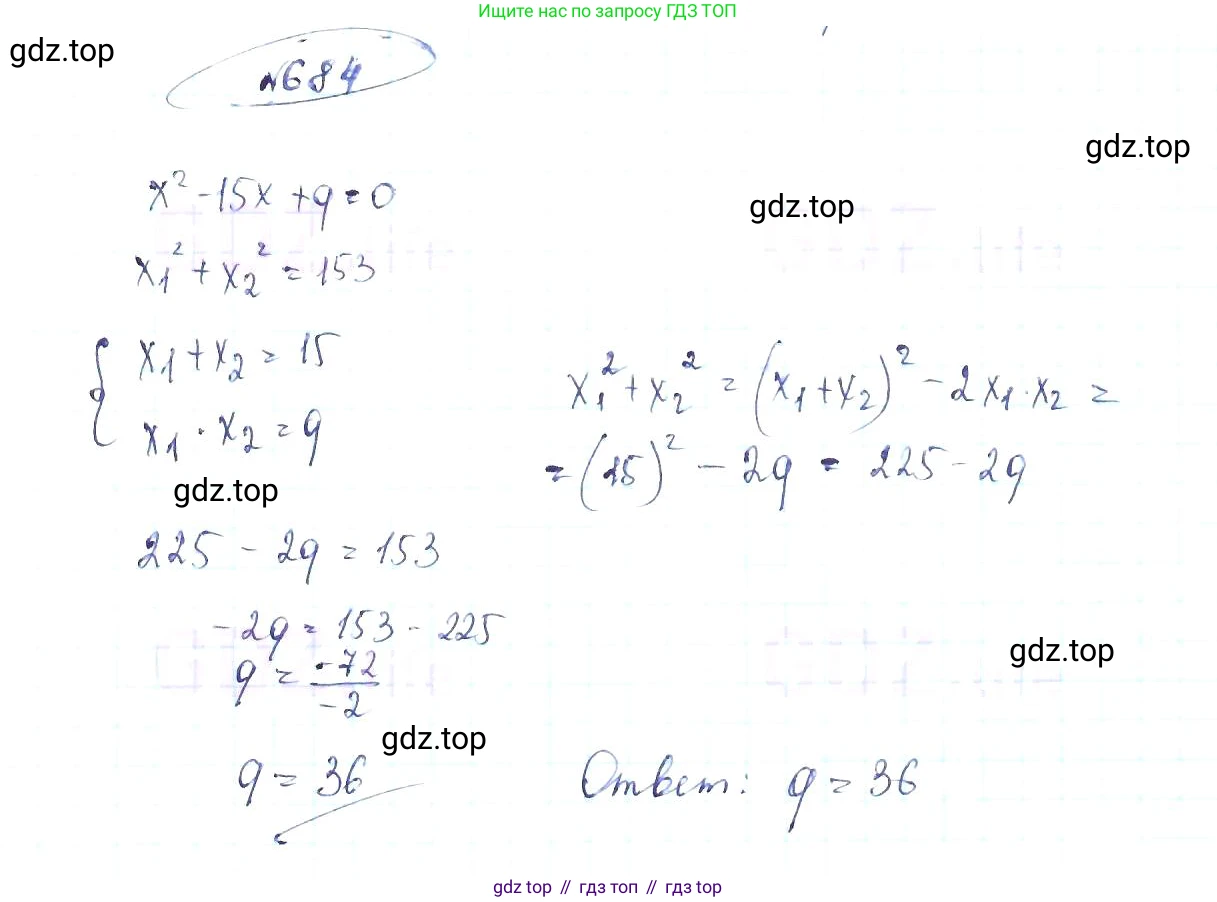 Ищите нас по запросу ГДЗ ТОП
gdz.top
№684
gdz.top
x² - 15x + q = 0
gdz.top
x₁² + x₂² = 153
{ x₁ + x₂ = 15
x₁ · x₂ = q
x₁² + x₂² = (x₁ + x₂)² - 2x₁·x₂ =
= (15)² - 2q = 225 - 2q
gdz.top
225 - 2q = 153
-2q = 153 - 225
q = -72/-2
gdz.top
gdz.top
q = 36
Ответ: q = 36
gdz top // гдз топ // гдз top